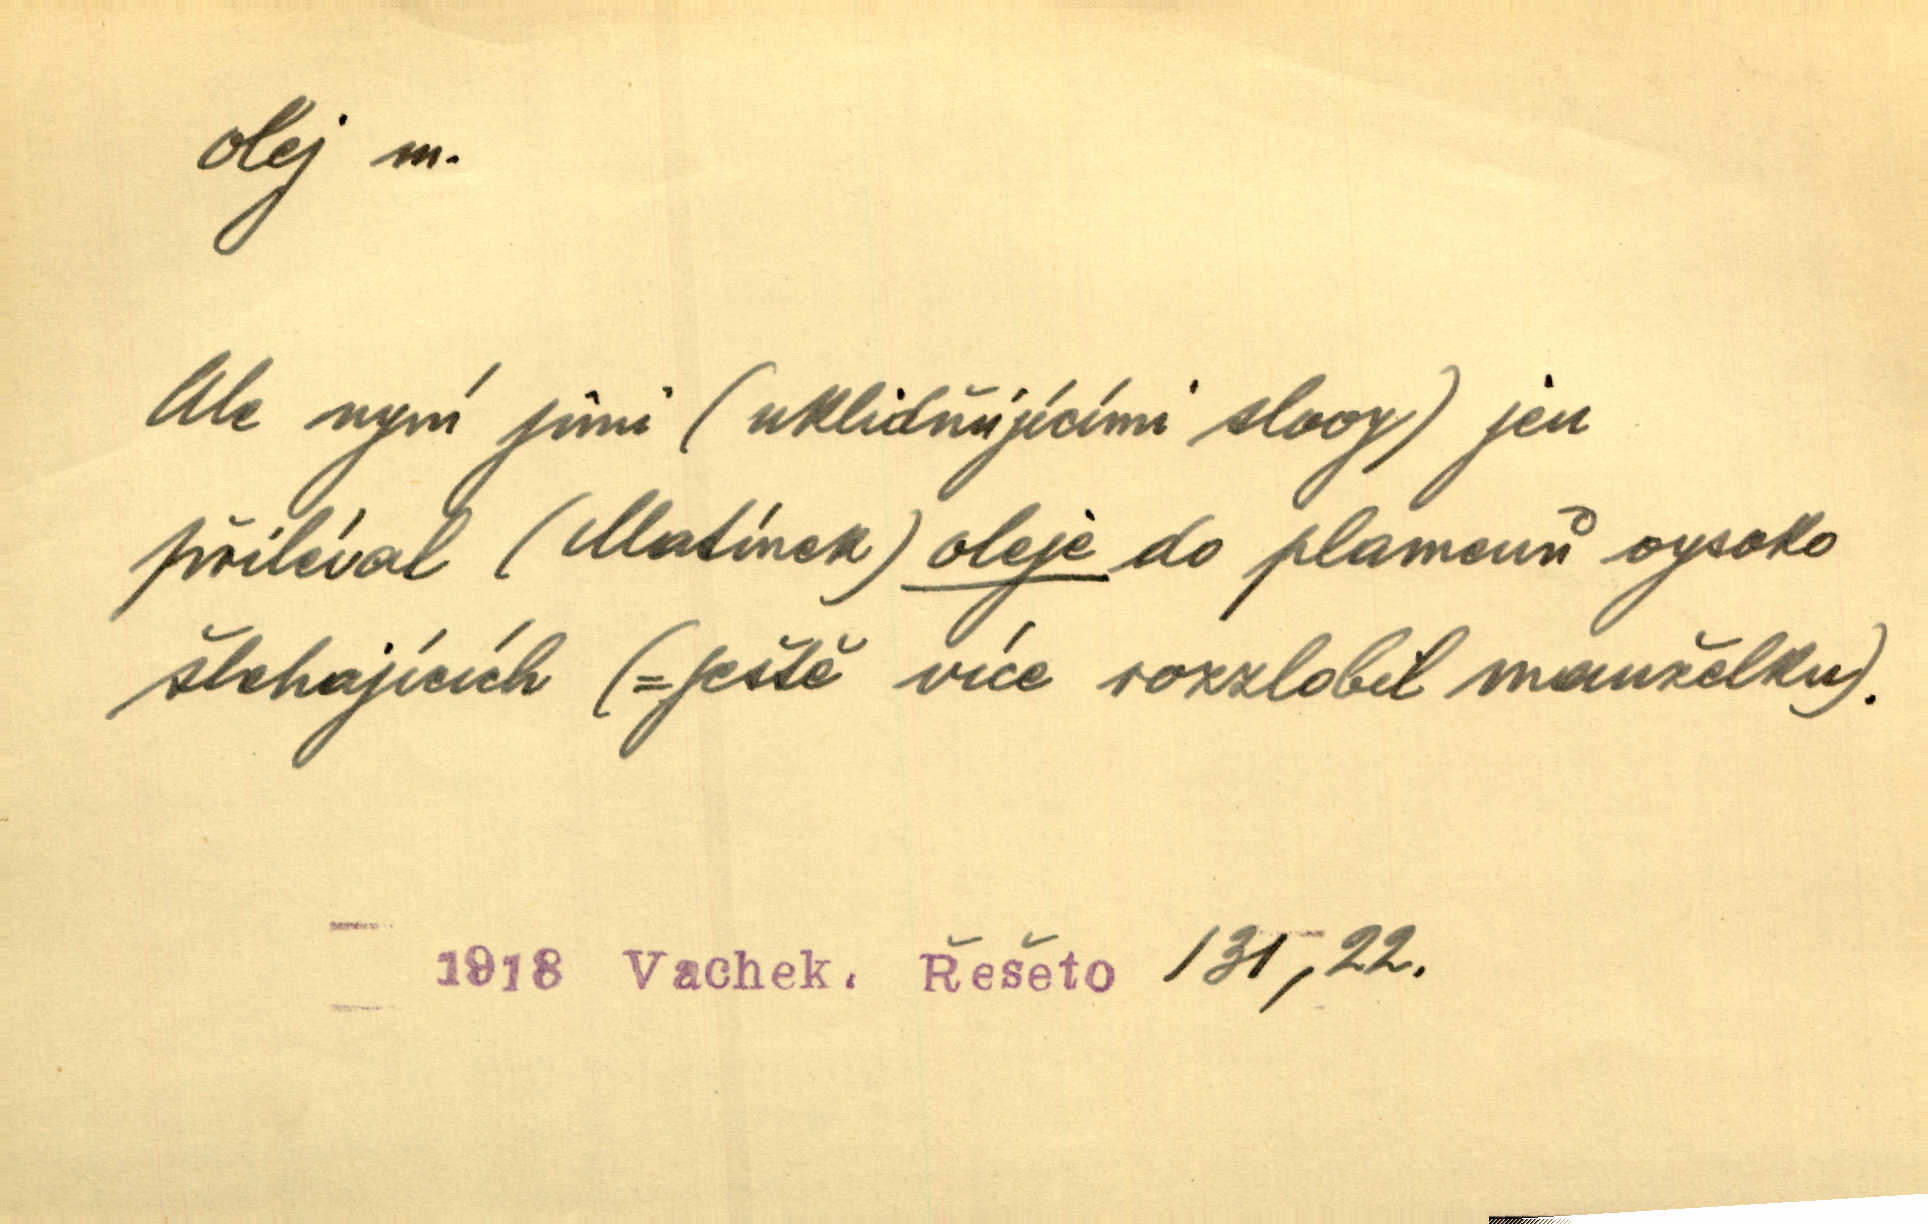 olej m.
Ale nyní jimi (uklidňujícími slovy) jen
přiléval (Matínek) oleje do plamenů vysoko
šlehajících (= ještě více rozzlobil manželku).
1918 Vachek. Řešeto 131,22.